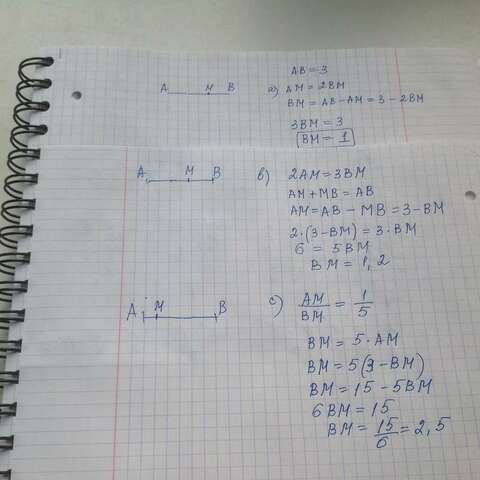 AB = 3
A M B
a) AM = 2BM
BM = AB - AM = 3 - 2BM
3BM = 3
BM = 1
A M B
b) 2AM = 3BM
AM + MB = AB
AM = AB - MB = 3 - BM
2·(3 - BM) = 3·BM
6 = 5BM
BM = 1,2
A M B
c) AM/BM = 1/5
BM = 5·AM
BM = 5(3 - BM)
BM = 15 - 5BM
6BM = 15
BM = 15/6 = 2,5